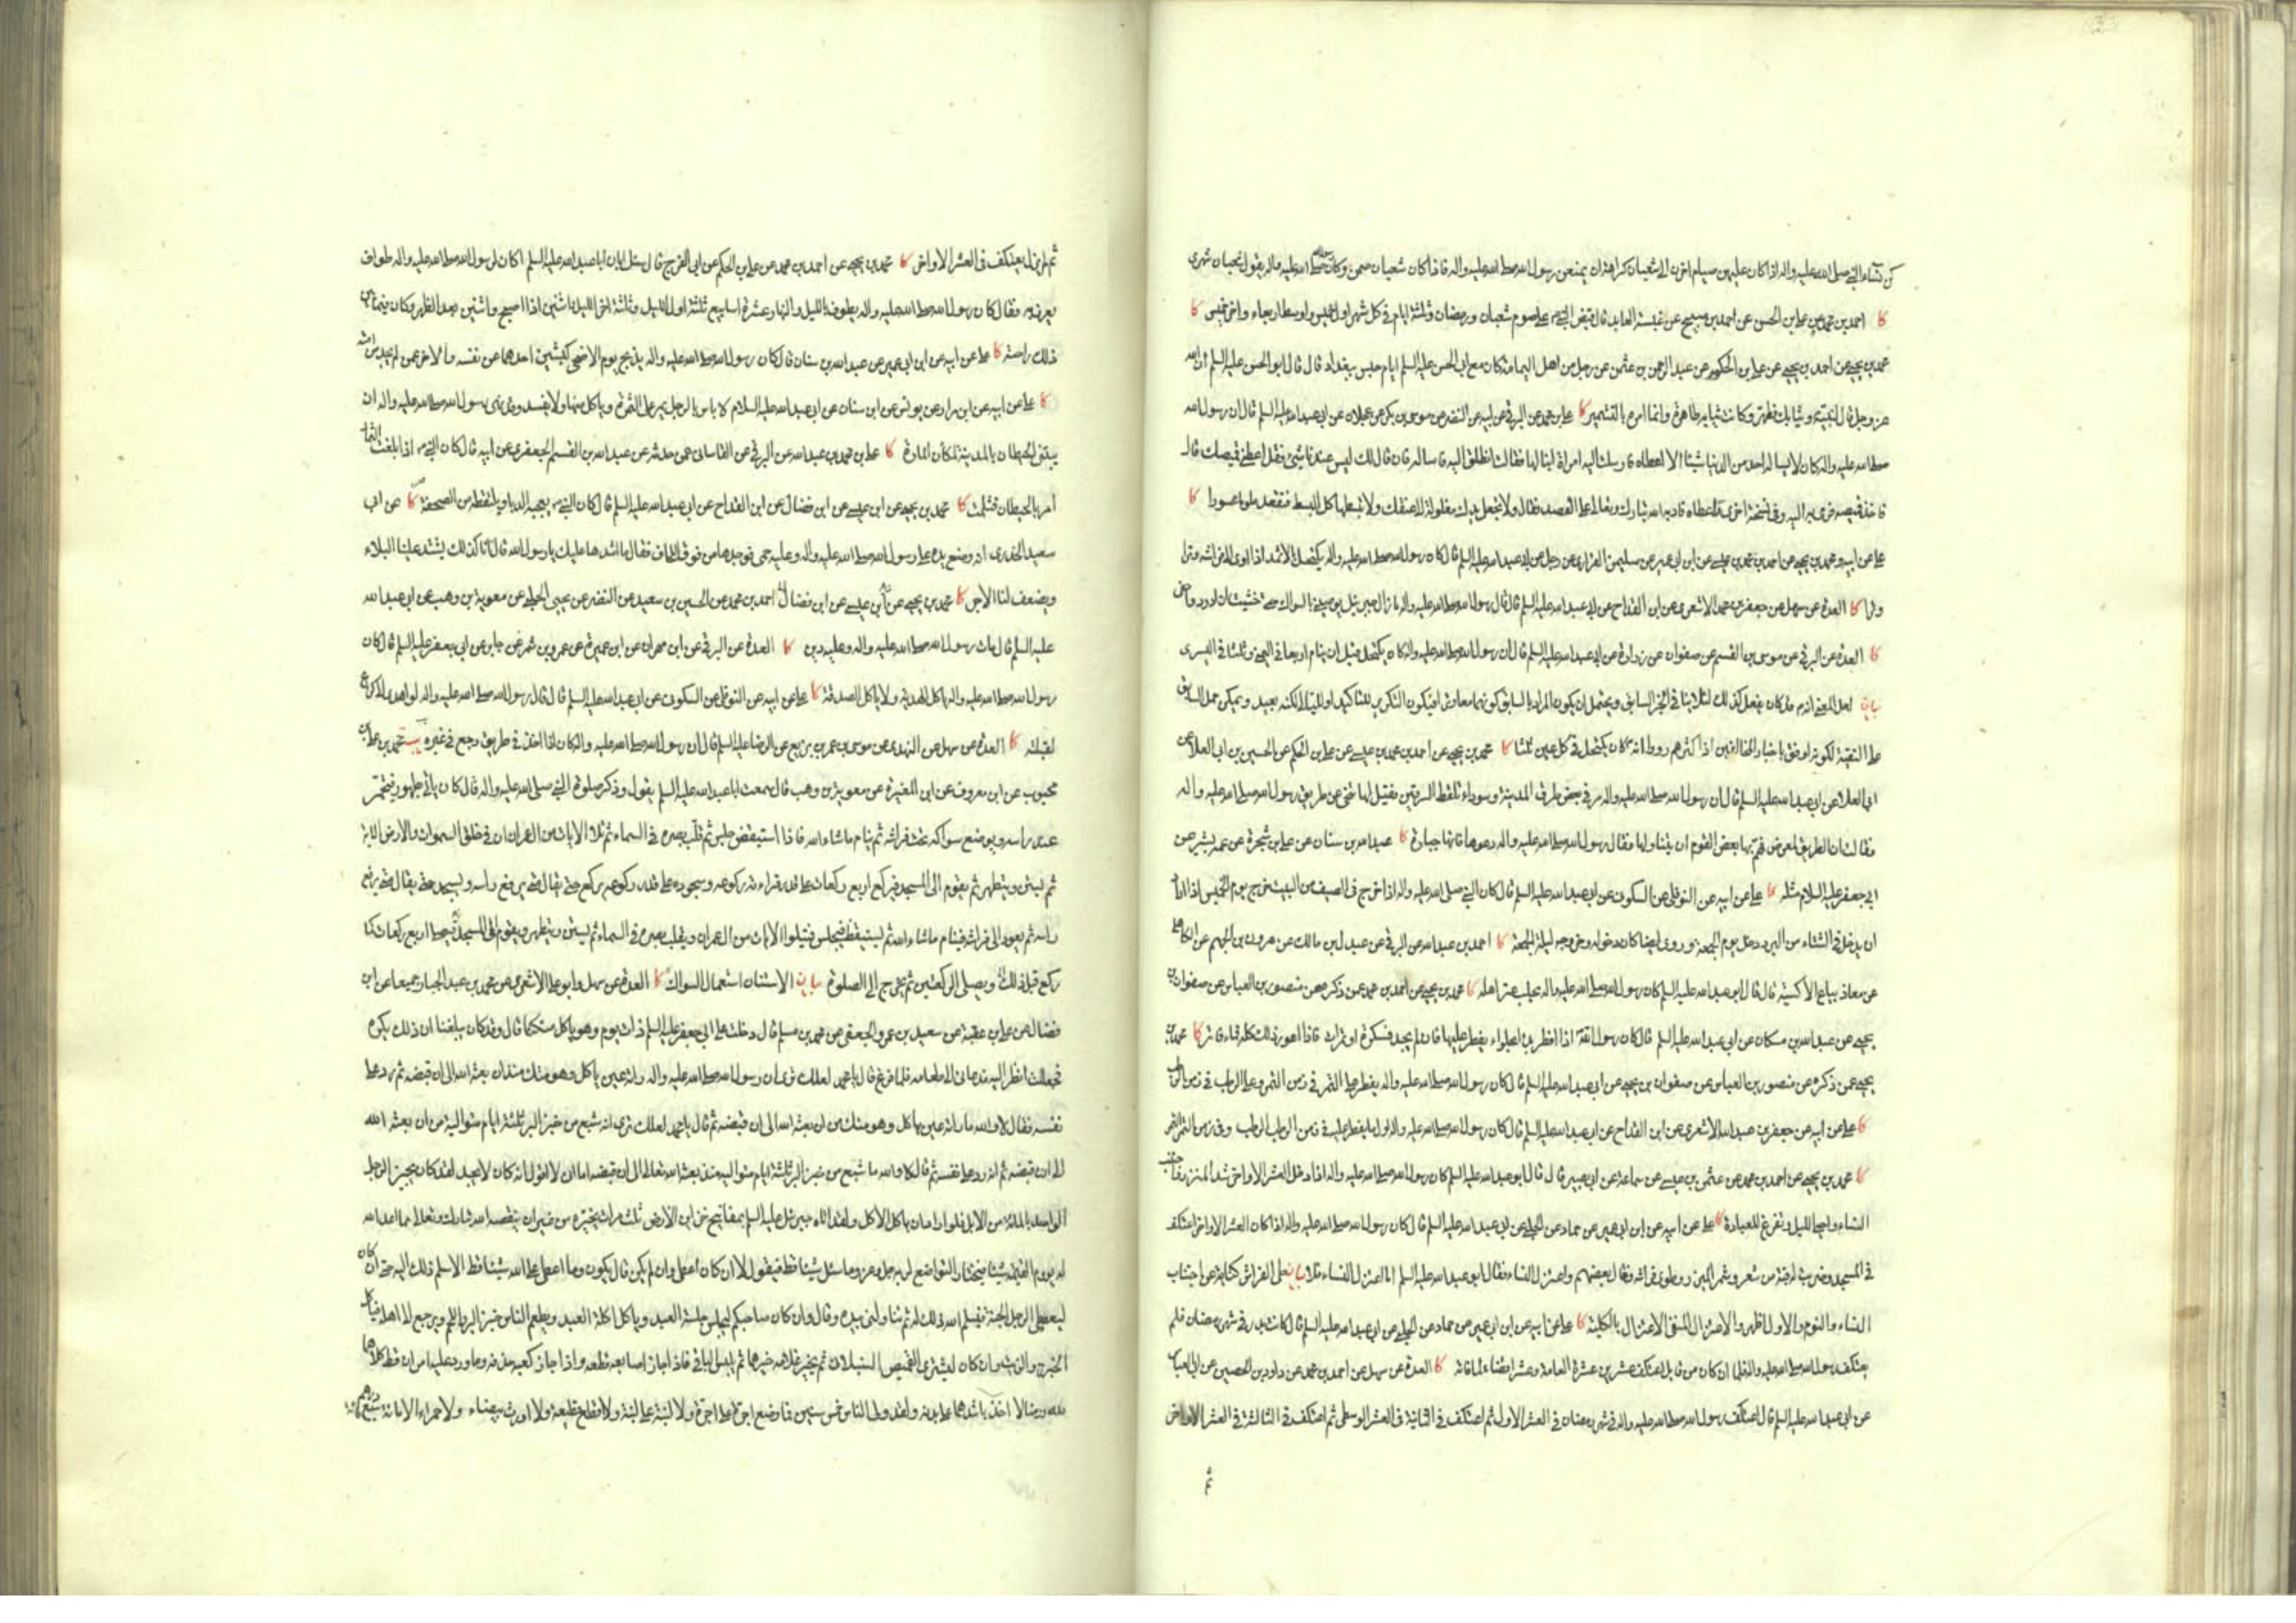 كن نساء النبي صلى الله عليه واله اذا كان عليهن صيام اخرن ذلك الى شعبان كراهة ان يمنعن رسول الله صلى الله عليه واله فاذا كان شعبان صمن وكان صلى الله عليه واله يقول شعبان شهري
كا احمد بن محمد عن علي بن الحسن عن احمد بن صبيح عن عنبسة العابد قال قبض النبي ص على صوم شعبان ورمضان وثلثة ايام في كل شهر اول خميس واوسط اربعاء واخر خميس كا
محمد بن يحيى عن احمد بن محمد عن علي بن الحكم عن عبد الرحمن بن عثمن عن رجل من اهل اليمامة كان مع ابي الحسن عليه السلم ايام حبس ببغداد قال قال ابو الحسن عليه السلم ان الله
عز وجل قال لنبيه وثيابك فطهر وكانت ثيابه طاهرة وانما امره بالتشمير كا علي بن محمد عن البرقي عن ابيه عن النضر عن موسى بن بكر عن عجلان عن ابي عبد الله عليه السلم قال ان رسول الله
صلى الله عليه واله كان لا يساله احد من الدنيا شيئا الا اعطاه فارسلت اليه امراة ابنا لها فقالت انطلق اليه فاساله فان قال لك ليس عندنا شئ فقل اعطني قميصك قال
فاخذ قميصه فرمى به اليه وفي نسخة اخرى فاعطاه فادبه الله تبارك وتعالى على القصد فقال ولا تجعل يدك مغلولة الى عنقك ولا تبسطها كل البسط فتقعد ملوما محسورا كا
علي عن ابيه ومحمد بن يحيى عن احمد بن محمد بن عيسى عن ابن ابي عمير عن سليمن الفزاري عن رجل عن ابي عبد الله عليه السلم قال كان رسول الله صلى الله عليه واله يكتحل بالاثمد اذا اوى الى فراشه وترا
وترا كا العدة عن سهل عن جعفر بن محمد الاشعري عن ابن القداح عن ابي عبد الله عليه السلم قال قال رسول الله صلى الله عليه واله ما زال جبرئيل يوصيني بالسواك حتى خشيت ان ادرد واحفي
كا العدة عن البرقي عن موسى بن القسم عن صفوان عن زرارة عن ابي عبد الله عليه السلم قال ان رسول الله صلى الله عليه واله كان يكتحل قبل ان ينام اربعا في اليمنى وثلثا في اليسرى
بيان لعل المعنى انه ص قد كان يفعل كذلك لئلا ينافي الخبر السابق ويحتمل ان يكون المراد بالسابق كونهما معا وترا فيكون التكرير للتاكيد لكنه بعيد ويمكن حمل السابق
على التقية لكونه اوفق باخبار المخالفين اذ اكثرهم رووا انه ص كان يكتحل في كل عين ثلثا كا محمد بن يحيى عن احمد بن محمد بن عيسى عن علي بن الحكم عن الحسين بن ابي العلا عن
ابي عبد الله عليه السلم قال ان رسول الله صلى الله عليه واله مر في بعض طرق المدينة وسوداء تلقط السرقين فقيل لها تنحي عن طريق رسول الله صلى الله عليه واله
فقالت ان الطريق لمعرض فهم بها بعض القوم ان يتناولها فقال رسول الله صلى الله عليه واله دعوها فانها جبارة كا عبد الله بن سنان عن علي بن شجرة عن عمه بشير عن
ابي جعفر عليه السلام مثله كا علي عن ابيه عن النوفلي عن السكوني عن ابي عبد الله عليه السلم قال كان النبي صلى الله عليه واله اذا خرج في الصيف من البيت خرج يوم الخميس اذا اراد
ان يدخل في الشتاء من البرد دخل يوم الجمعة وروي ايضا كان دخوله وخروجه ليلة الجمعة كا احمد بن عبد الله عن البرقي عن عبدل بن مالك عن هرون بن الجهم عن الكاهلي
عن معاذ بياع الاكسية قال قال ابو عبد الله عليه السلم كان رسول الله صلى الله عليه واله يحلب عنز اهله كا محمد بن يحيى عن احمد بن محمد عمن ذكره عن منصور بن العباس عن صفوان بن
يحيى عن عبد الله بن مسكان عن ابي عبد الله عليه السلم قال كان رسول الله اذا افطر بدا بحلواء يفطر عليها فان لم يجد فسكرة او تمرات فاذا اعوز ذلك كله فماء فاتر كا محمد بن
يحيى عمن ذكره عن منصور بن العباس عن صفوان بن يحيى عن ابي عبد الله عليه السلم قال كان رسول الله صلى الله عليه واله يفطر على التمر في زمن التمر وعلى الرطب في زمن الرطب
كا علي عن ابيه عن جعفر بن عبد الله الاشعري عن ابن القداح عن ابي عبد الله عليه السلم قال كان رسول الله صلى الله عليه واله اول ما يفطر عليه في زمن الرطب الرطب وفي زمن التمر التمر
كا محمد بن يحيى عن احمد بن محمد عن عثمن بن عيسى عن سماعة عن ابي بصير قال قال ابو عبد الله عليه السلم كان رسول الله صلى الله عليه واله اذا دخل العشر الاواخر شد المئزر واجتنب
النساء واحيا الليل وتفرغ للعبادة كا علي عن ابيه عن ابن ابي عمير عن حماد عن الحلبي عن ابي عبد الله عليه السلم قال كان رسول الله صلى الله عليه واله اذا كان العشر الاواخر اعتكف
في المسجد وضربت له قبة من شعر وشمر المئزر وطوى فراشه وقال بعضهم واعتزل النساء فقال ابو عبد الله عليه السلم اما اعتزال النساء فلا بيان طي الفراش كناية عن اجتناب
النساء والنوم والاول اظهر والاعتزال المنفي الاعتزال بالكلية كا علي عن ابيه عن ابن ابي عمير عن حماد عن الحلبي عن ابي عبد الله عليه السلم قال كانت بدر في شهر رمضان فلم
يعتكف رسول الله صلى الله عليه واله فلما ان كان من قابل اعتكف عشرين عشرة لعامه وعشرا قضاء لما فاته كا العدة عن سهل عن احمد بن محمد عن داود بن الحصين عن ابي العباس
عن ابي عبد الله عليه السلم قال اعتكف رسول الله صلى الله عليه واله في شهر رمضان في العشر الاول ثم اعتكف في الثانية في العشر الوسطى ثم اعتكف في الثالثة في العشر الاواخر
ثم
ثم لم يزل يعتكف في العشر الاواخر كا محمد بن يحيى عن احمد بن محمد عن علي بن الحكم عن ابي الفرج قال سئل ابان ابا عبد الله عليه السلم اكان لرسول الله صلى الله عليه واله طواف
يعرف به فقال كان رسول الله صلى الله عليه واله يطوف بالليل والنهار عشرة اسابيع ثلثة اول الليل وثلثة اخر الليل واثنين اذا اصبح واثنين بعد الظهر وكان فيما بين
ذلك راحته كا علي عن ابيه عن ابن ابي عمير عن عبد الله بن سنان قال كان رسول الله صلى الله عليه واله يذبح يوم الاضحى كبشين احدهما عن نفسه والاخر عمن لم يجد من امته
كا علي عن ابيه عن ابن مرار عن يونس عن ابن سنان عن ابي عبد الله عليه السلام لا باس بالرجل يمر على الثمرة وياكل منها ولا يفسد وقد نهى رسول الله صلى الله عليه واله ان
يبنى الحيطان بالمدينة لمكان المارة كا علي بن محمد بن عبد الله عن البرقي عن القاساني عمن حدثه عن عبد الله بن القسم الجعفري عن ابيه قال كان النبي ص اذا بلغت الثمار
امر بالحيطان فثلمت كا محمد بن يحيى عن ابن عيسى عن ابن فضال عن ابن القداح عن ابي عبد الله عليه السلم قال كان النبي ص يعجبه الدباء ويلتقطه من الصحفة كا عن ابي
سعيد الخدري انه وضع يده على رسول الله صلى الله عليه واله وعليه حمى فوجدها من فوق اللحاف فقال ما اشدها عليك يا رسول الله قال انا كذلك يشتد علينا البلاء
ويضعف لنا الاجر كا محمد بن يحيى عن ابن عيسى عن ابن فضال احمد بن محمد عن الحسين بن سعيد عن النضر عن يحيى الحلبي عن معوية بن وهب عن ابي عبد الله
عليه السلم قال مات رسول الله صلى الله عليه واله وعليه دين كا العدة عن البرقي عن ابن مهران عن ابن عميرة عن عمرو بن شمر عن جابر عن ابي جعفر عليه السلم قال كان
رسول الله صلى الله عليه واله ياكل الهدية ولا ياكل الصدقة كا علي عن ابيه عن النوفلي عن السكوني عن ابي عبد الله عليه السلم قال قال رسول الله صلى الله عليه واله لو اهدي الي كراع
لقبلته كا العدة عن سهل عن النهدي عن موسى بن عمر بن بزيع عن الرضا عليه السلم قال ان رسول الله صلى الله عليه واله كان اذا اخذ في طريق رجع في غيره يب محمد بن علي بن
محبوب عن ابن معروف عن ابن المغيرة عن معوية بن وهب قال سمعت ابا عبد الله عليه السلم يقول وذكر صلوة النبي صلى الله عليه واله قال كان ياتى بطهور فيخمر
عند راسه ويوضع سواكه تحت فراشه ثم ينام ما شاء الله فاذا استيقظ جلس ثم قلب بصره في السماء ثم تلا الايات من ال عمران ان في خلق السموات والارض الاية
ثم يستن ويتطهر ثم يقوم الى المسجد فيركع اربع ركعات على قدر قراءته ركوعه وسجوده على قدر ركوعه يركع حتى يقال متى يرفع راسه ويسجد حتى يقال متى يرفع
راسه ثم يعود الى فراشه فينام ما شاء الله ثم يستيقظ فيجلس فيتلوا الايات من ال عمران ويقلب بصره في السماء ثم يستن ويتطهر ويقوم الى المسجد فيصلى اربع ركعات كما
ركع قبل ذلك ويصلي الركعتين ثم يخرج الى الصلوة بيان الاستنان استعمال السواك كا العدة عن سهل وابو علي الاشعري عن محمد بن عبد الجبار جميعا عن ابن
فضال عن علي بن عقبة عن سعيد بن عمرو الجعفي عن محمد بن مسلم قال دخلت على ابي جعفر عليه السلم ذات يوم وهو ياكل متكئا قال وقد كان يبلغنا ان ذلك يكره
فجعلت انظر اليه فدعاني الى طعامه فلما فرغ قال يا محمد لعلك ترى ان رسول الله صلى الله عليه واله راته عين ياكل وهو متكئ منذ ان بعثه الله الى ان قبضه ثم رد على
نفسه فقال لا والله ما راته عين ياكل وهو متكئ من ان بعثه الله الى ان قبضه ثم قال يا محمد لعلك ترى انه شبع من خبز البر ثلثة ايام متوالية من ان بعثه الله
الى ان قبضه ثم انه رد على نفسه ثم قال لا والله ما شبع من خبز البر ثلثة ايام متوالية منذ بعثه الله تعالى الى ان قبضه اما اني لا اقول انه كان لا يجد لقد كان يجيز الرجل
الواحد بالمائة من الابل فلو اراد ان ياكل لاكل ولقد اتاه جبرئيل عليه السلم بمفاتيح خزاين الارض ثلث مرات يخيره من غير ان ينقصه الله تبارك وتعالى مما اعد الله
له يوم القيمة شيئا فيختار التواضع لربه جل وعز وما سئل شيئا قط فيقول لا ان كان اعطى وان لم يكن قال يكون وما اعطى على الله شيئا قط الا سلم ذلك اليه حتى ان كان
ليعطي الرجل الجنة فيسلم الله ذلك له ثم تناولني بيده وقال وان كان صاحبكم ليجلس جلسة العبد وياكل اكلة العبد ويطعم الناس خبز البر واللحم ويرجع الى اهله فياكل
الخبز والزيت وان كان ليشتري القميص السنبلاني ثم يخير غلامه خيرهما ثم يلبس الباقي فاذا جاز اصابعه قطعه واذا جاز كعبه حذفه وما ورد عليه امران قط كلاهما
لله رضا الا اخذ باشدهما على بدنه ولقد ولي الناس خمس سنين فما وضع اجرة على اجرة ولا لبنة على لبنة ولا اقطع قطيعة ولا اورث بيضاء ولا حمراء الا سبع مائة درهم